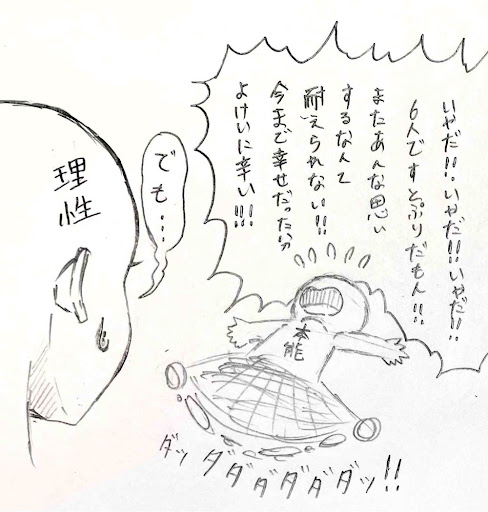 いやだ!!いやだ!!いやだ!!
6人ですとぷりだもん!!
またあんな思い
するなんて
耐えられない!!
今まで幸せだった分
よけいに辛い!!!
でも…
理性
本能
ダッ ダダダダダダッ!!